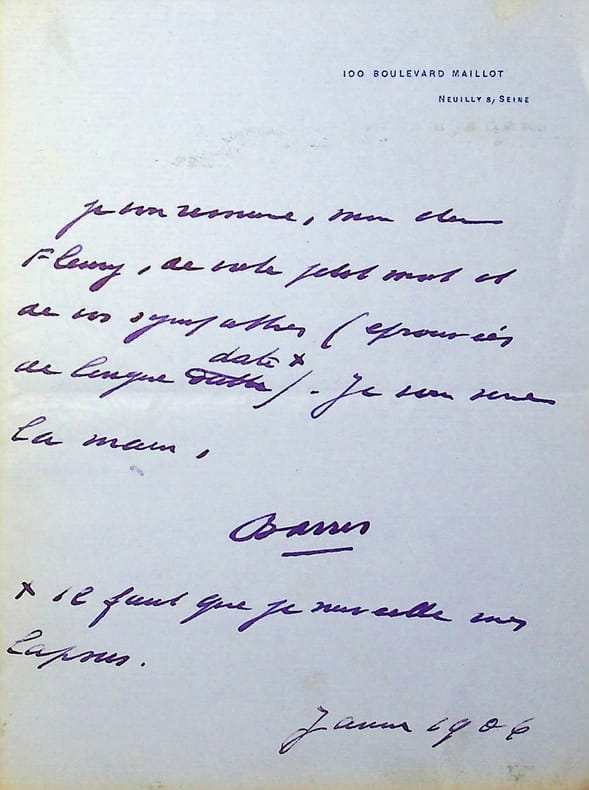 100 BOULEVARD MAILLOT
NEUILLY S/ SEINE
je vous remercie, mon cher
Fleury, de votre petit mot et
de vos sympathies (éprouvées
de longue date x). Je vous serre
la main,
Barrès
x il faut que je surveille mes
lapsus.
Janvier 1906